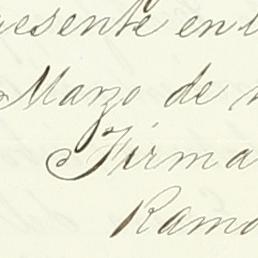 resente en l
Marzo de
Firma
Ramo